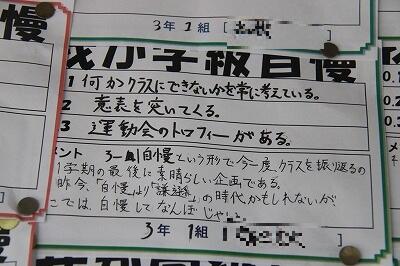 3年 1組 [
慢
我が学級自慢
1 何かクラスにできないかを常に考えている。
2 意表を突いてくる。
3 運動会のトロフィーがある。
メント 3-1自慢という形で今一度、クラスを振り返るの
1学期の最後に素晴らしい企画である。
昨今、「自慢」より「謙遜」の時代かもしれないが、
こでは、自慢してなんぼじゃ
3年 1組 [